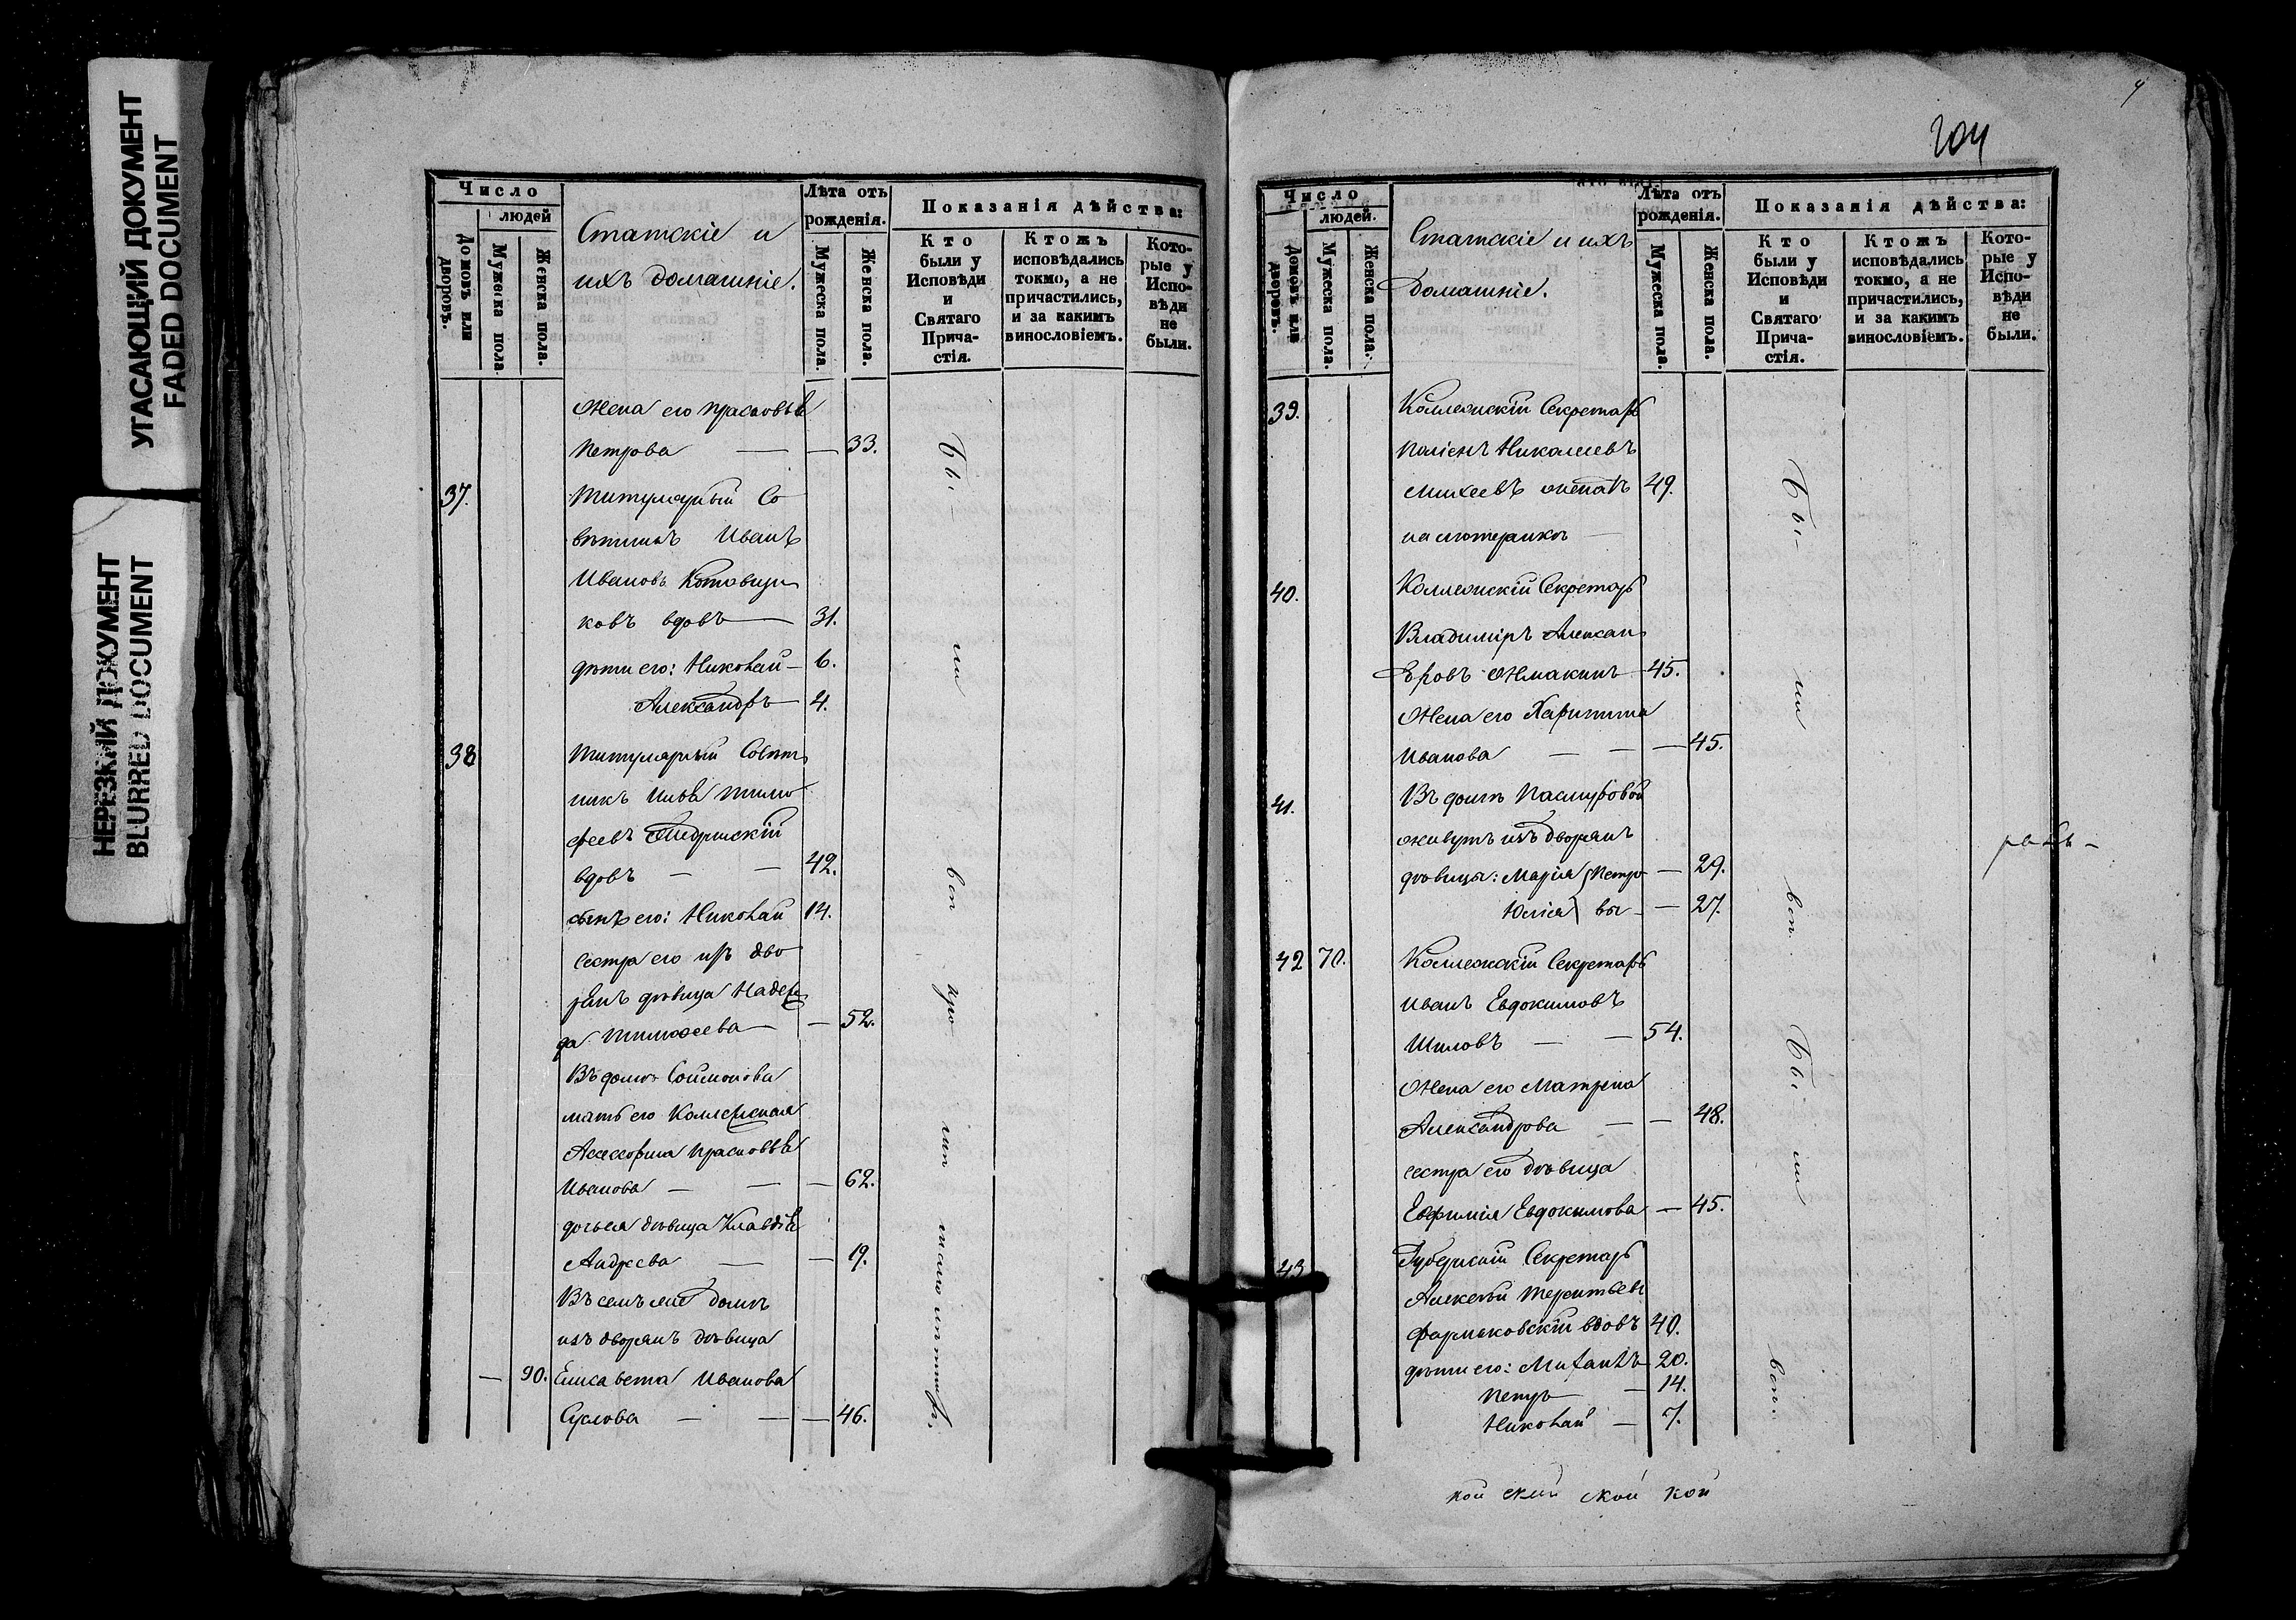 УГАСАЮЩИЙ ДОКУМЕНТ
FADED DOCUMENT
НЕРЕЗКИЙ ДОКУМЕНТ
BLURRED DOCUMENT
Число
людей
Домовъ или дворовъ.
Мужеска пола.
Женска пола.
Статскіе и
ихъ домашніе.
Лѣта отъ
рожденія.
Мужеска пола.
Женска пола.
Показанія дѣйства:
Кто
были у
Исповѣди
и
Святаго
Прича-
стія.
Ктожъ
исповѣдались
токмо, а не
причастились,
и за какимъ
винословіемъ.
Кото-
рые у
Испо-
вѣди
не
были.
Жена его Прасковья
Петрова — — 33.
37. Титулярный Со
вѣтникъ Иванъ
Ивановъ
ковъ вдовъ — 31.
дѣти его: Николай — 6.
Александръ — 4.
38 Титулярный Совѣт
никъ Илья Тимо
феевъ
вдовъ — — 42.
сынъ его: Николай 14.
Сестра его изъ дво
рянъ дѣвица Надеж
да Тимофеева — — 52.
Въ домѣ Соймонова
мать его Коллежская
Асессорша Прасковья
Иванова — — — 62.
дочь ея дѣвица Клавдія
Андреева — — 19.
Въ семъ же домѣ
изъ дворянъ дѣвица
— 90. Елисавета Ивановa
Суслова — — — 46.
Бы-
ли
204
Число
людей.
Домовъ или дворовъ.
Мужеска пола.
Женска пола.
Статскіе и ихъ
домашніе.
Лѣта отъ
рожденія.
Мужеска пола.
Женска пола.
Показанія дѣйства:
Кто
были у
Исповѣди
и
Святаго
Прича-
стія.
Ктожъ
исповѣдались
токмо, а не
причастились,
и за какимъ
винословіемъ.
Кото-
рые у
Испо-
вѣди
не
были.
39. Коллежскій Секретарь
Николаевъ
Михеевъ женатъ 49.
на лютеранкѣ —
40. Коллежскій Секретарь
Владиміръ Александ
ровъ Жмакинъ — 45.
Жена его Харитина
Иванова — — — 45.
41. Въ домѣ
живутъ изъ дворянъ
дѣвицы: Марія } Петро — 29.
Юлія } вы — — 27.
42 70. Коллежскій Секретарь
Иванъ Евдокимовъ
Шиловъ — — 54.
Жена его Матрена
Александрова — — 48.
сестра его дѣвица
Евфимія Евдокимова — 45.
43 Губернскій Секретарь
Алексѣй Терентьевъ
Фармаковскій вдовъ 40.
дѣти его: Михаилъ 20.
Петръ — 14.
Николай — 7.
Бы-
ли
всп.
Бы-
ли
всп.
кой ской кой